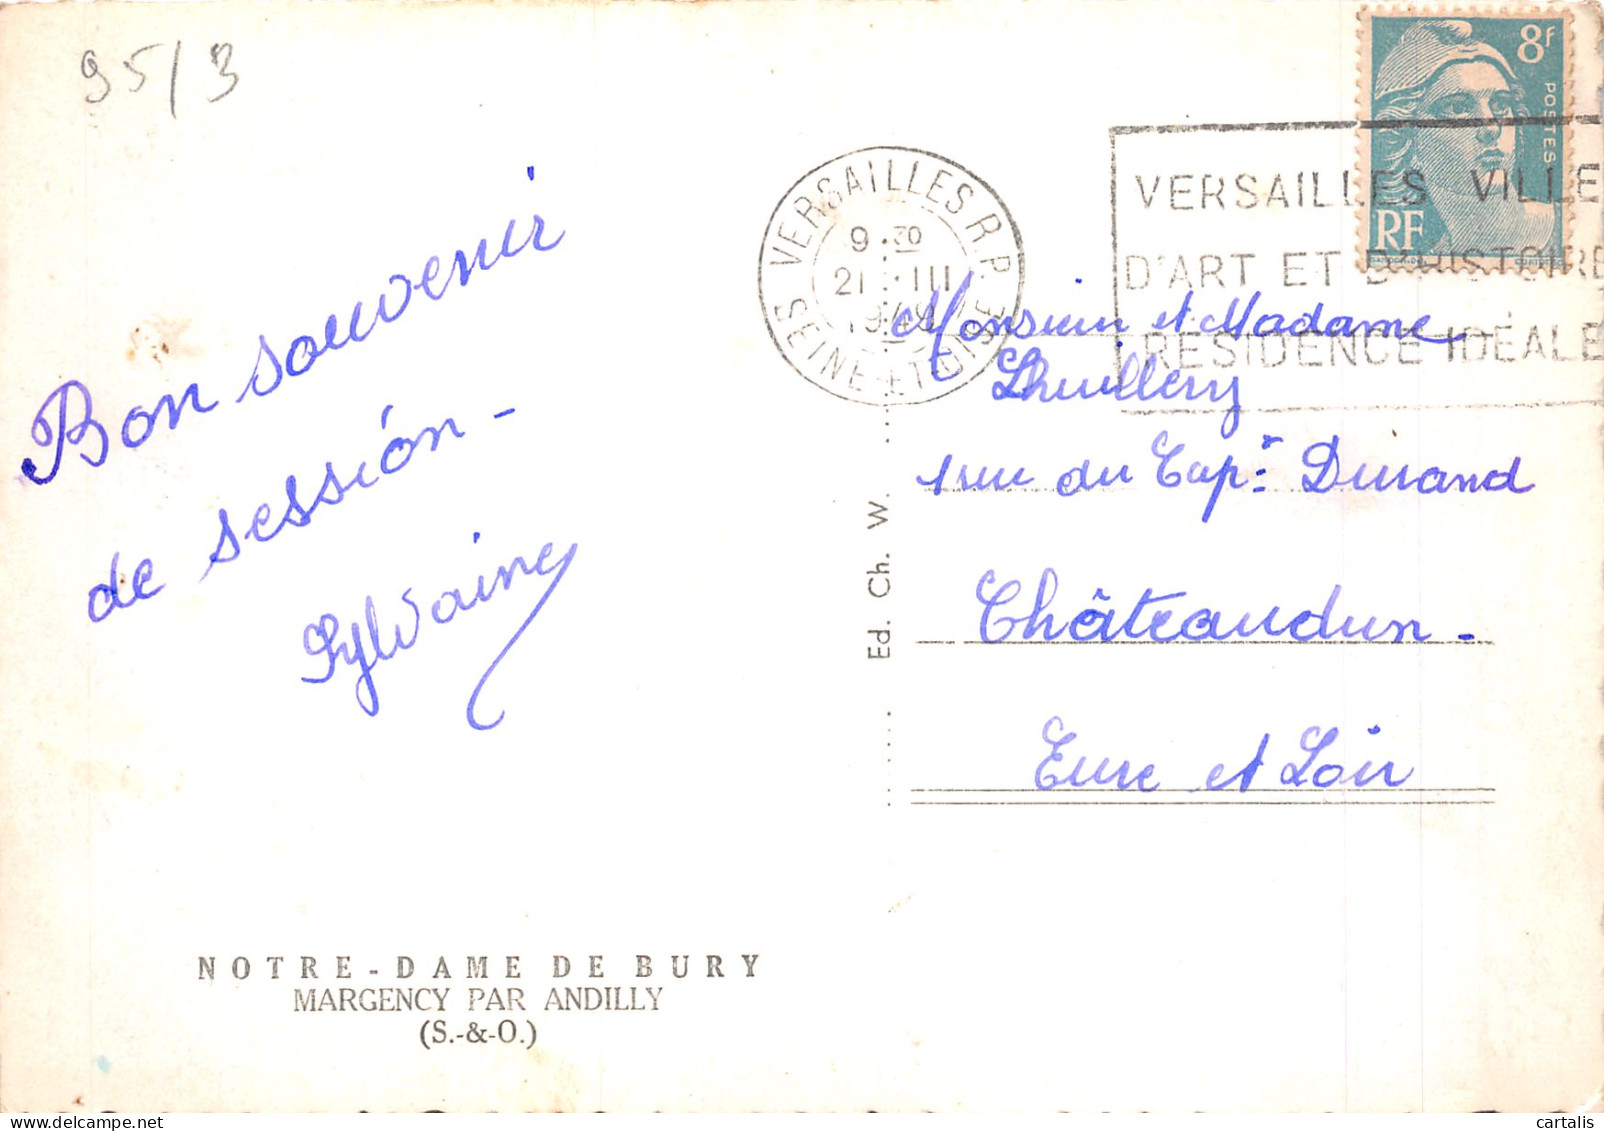 95/3
Bon souvenir
de session -
Sylvaine
NOTRE-DAME DE BURY
MARGENCY PAR ANDILLY
(S.-&-O.)
Ed. Ch. W.
VERSAILLES R.P.
9 30
21 III
SEINE-ET-OISE
8F
POSTES
RF
VERSAILLES VILLE
D'ART ET D'HISTOIRE
RÉSIDENCE IDÉALE
Monsieur et Madame
Lhuillery
1 rue du Cap. Durand
Châteaudun.
Eure et Loir
cartalis